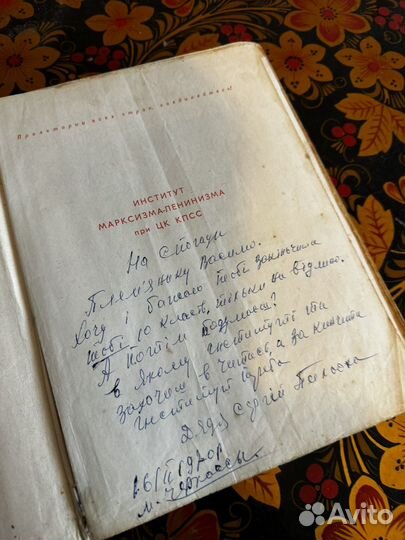 Пролетарии всех стран, соединяйтесь!
ИНСТИТУТ
МАРКСИЗМА-ЛЕНИНИЗМА
при ЦК КПСС
На спогади
Племяннику Василю.
Хочу і бажаю тобі закінчить
тобі 10 класів, тільки на відмінно.
А потім подумаєш?
в якому інституті та
захочеш вчитись, а закінчить
інститут треба
Дядя Сергій
16/II 1970г
м. Черкассы.
Avito